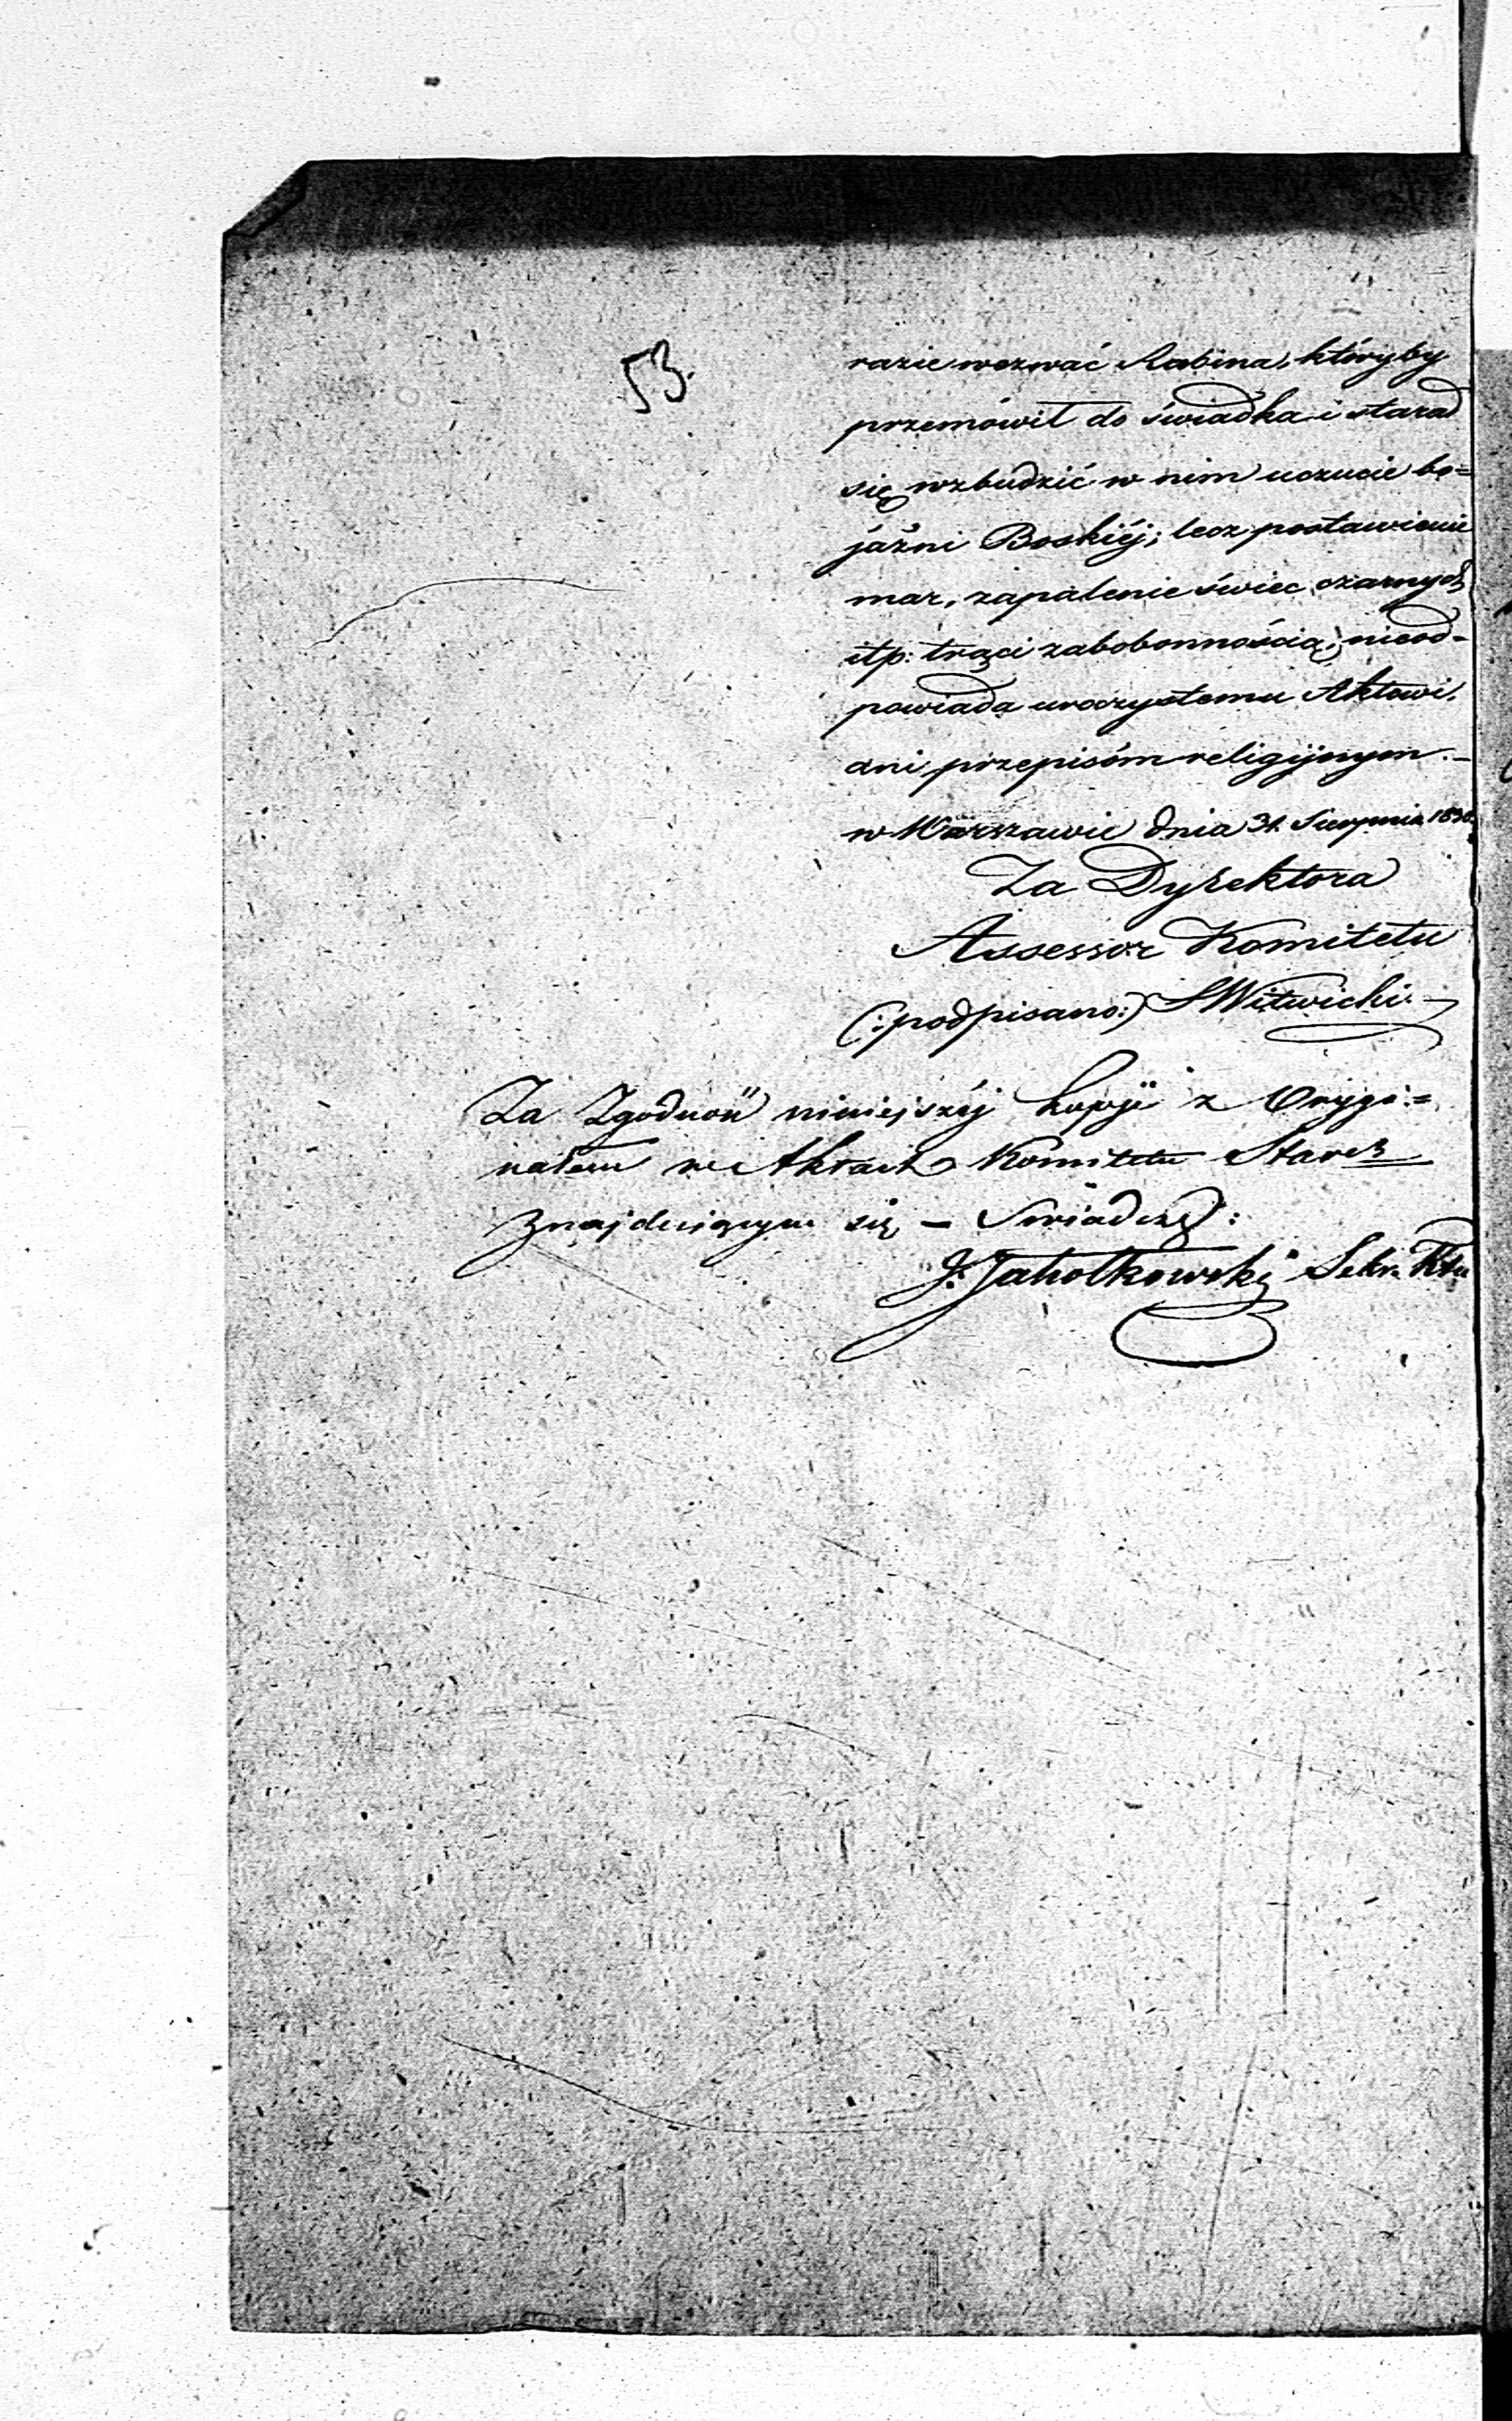 53.
razie wezwać Rabina, któryby
przemówił do świadka i starał
się wzbudzić w nim uczucie bo=
jaźni Boskiéj; lecz postawienie
mar, zapalenie świec czarnych
itp: trąci zabobonnością; nieod-
powiada uroczystemu Aktowi,
ani przepisóm religijnym.–
w Warszawie dnia 31 Sierpnia 1830.
Za Dyrektora
Assessor Komitetu
(:podpisano:) SWitwicki.
Za Zgodność niniejszéj kopji z Orygi:=
nałem w Aktach Komitetu Staroz
znajdującym się – Swiadczę:
J. Jahołkowski Sekr. Ktu